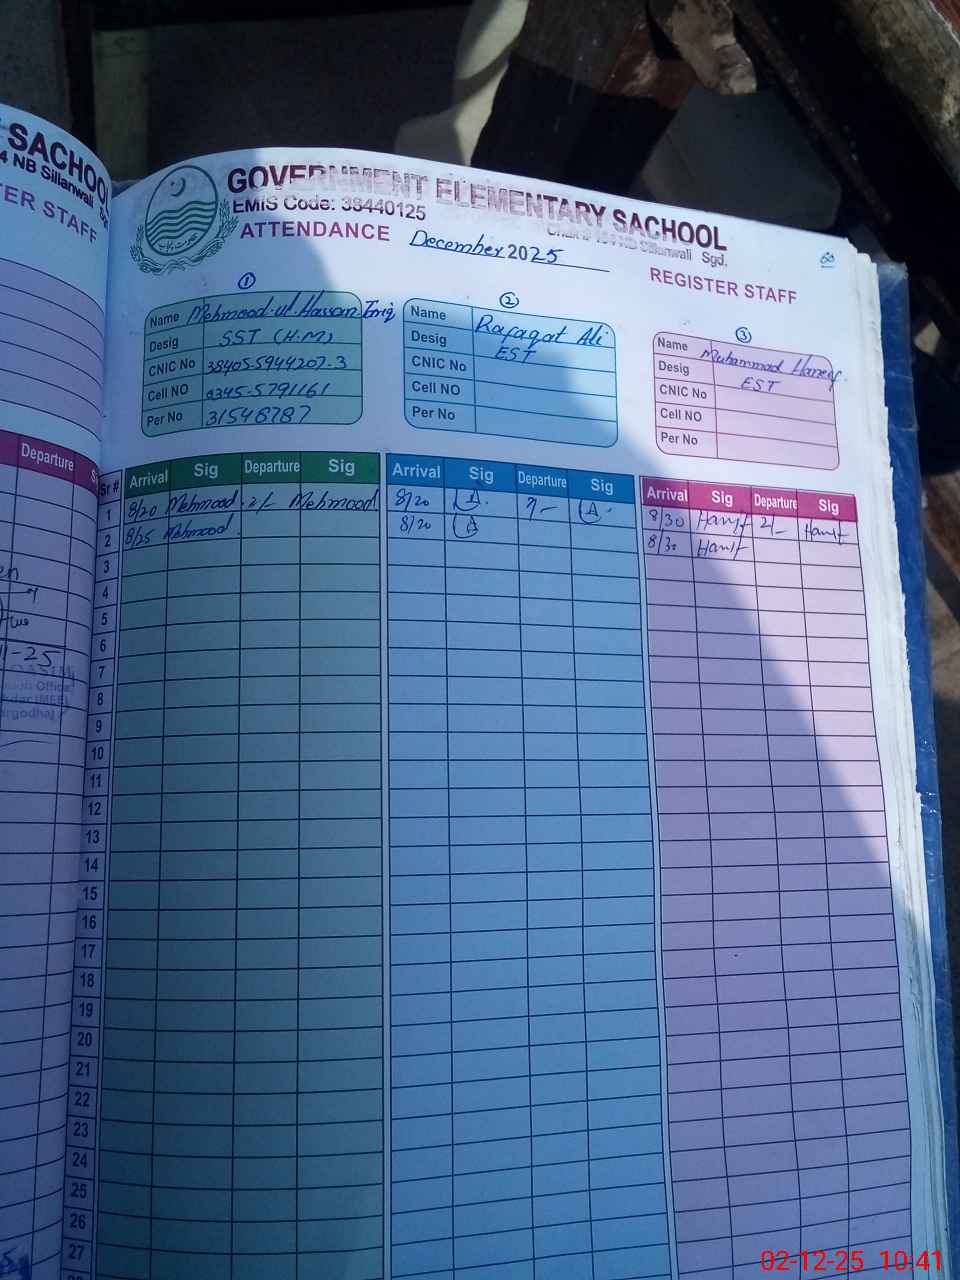 SACHOO
4 NB Sillanwali Sg
TER STAFF
Departure
S
11-25
GOVERNMENT ELEMENTARY SACHOOL
EMIS Code: 38440125
NB Sillanwali Sgd.
ATTENDANCE December 2025
REGISTER STAFF
①
Name Mehmood-ul-Hassan
Desig SST (H.M)
CNIC No 38405-5944207-3
Cell NO 0345-5791161
Per No 31546787
②
Name Rafaqat Ali
Desig EST
CNIC No
Cell NO
Per No
③
Name Muhammad Haneef
Desig EST
CNIC No
Cell NO
Per No
Sr # Arrival Sig Departure Sig Arrival Sig Departure Sig Arrival Sig Departure Sig
1 8/20 Mehmood 2/- Mehmood 8/20 8/30 Hanif 2/- Hanif
2 8/25 Mehmood 8/20 8/30 Hanif
3
4
5
6
7
8
9
10
11
12
13
14
15
16
17
18
19
20
21
22
23
24
25
26
27
02-12-25 10:41